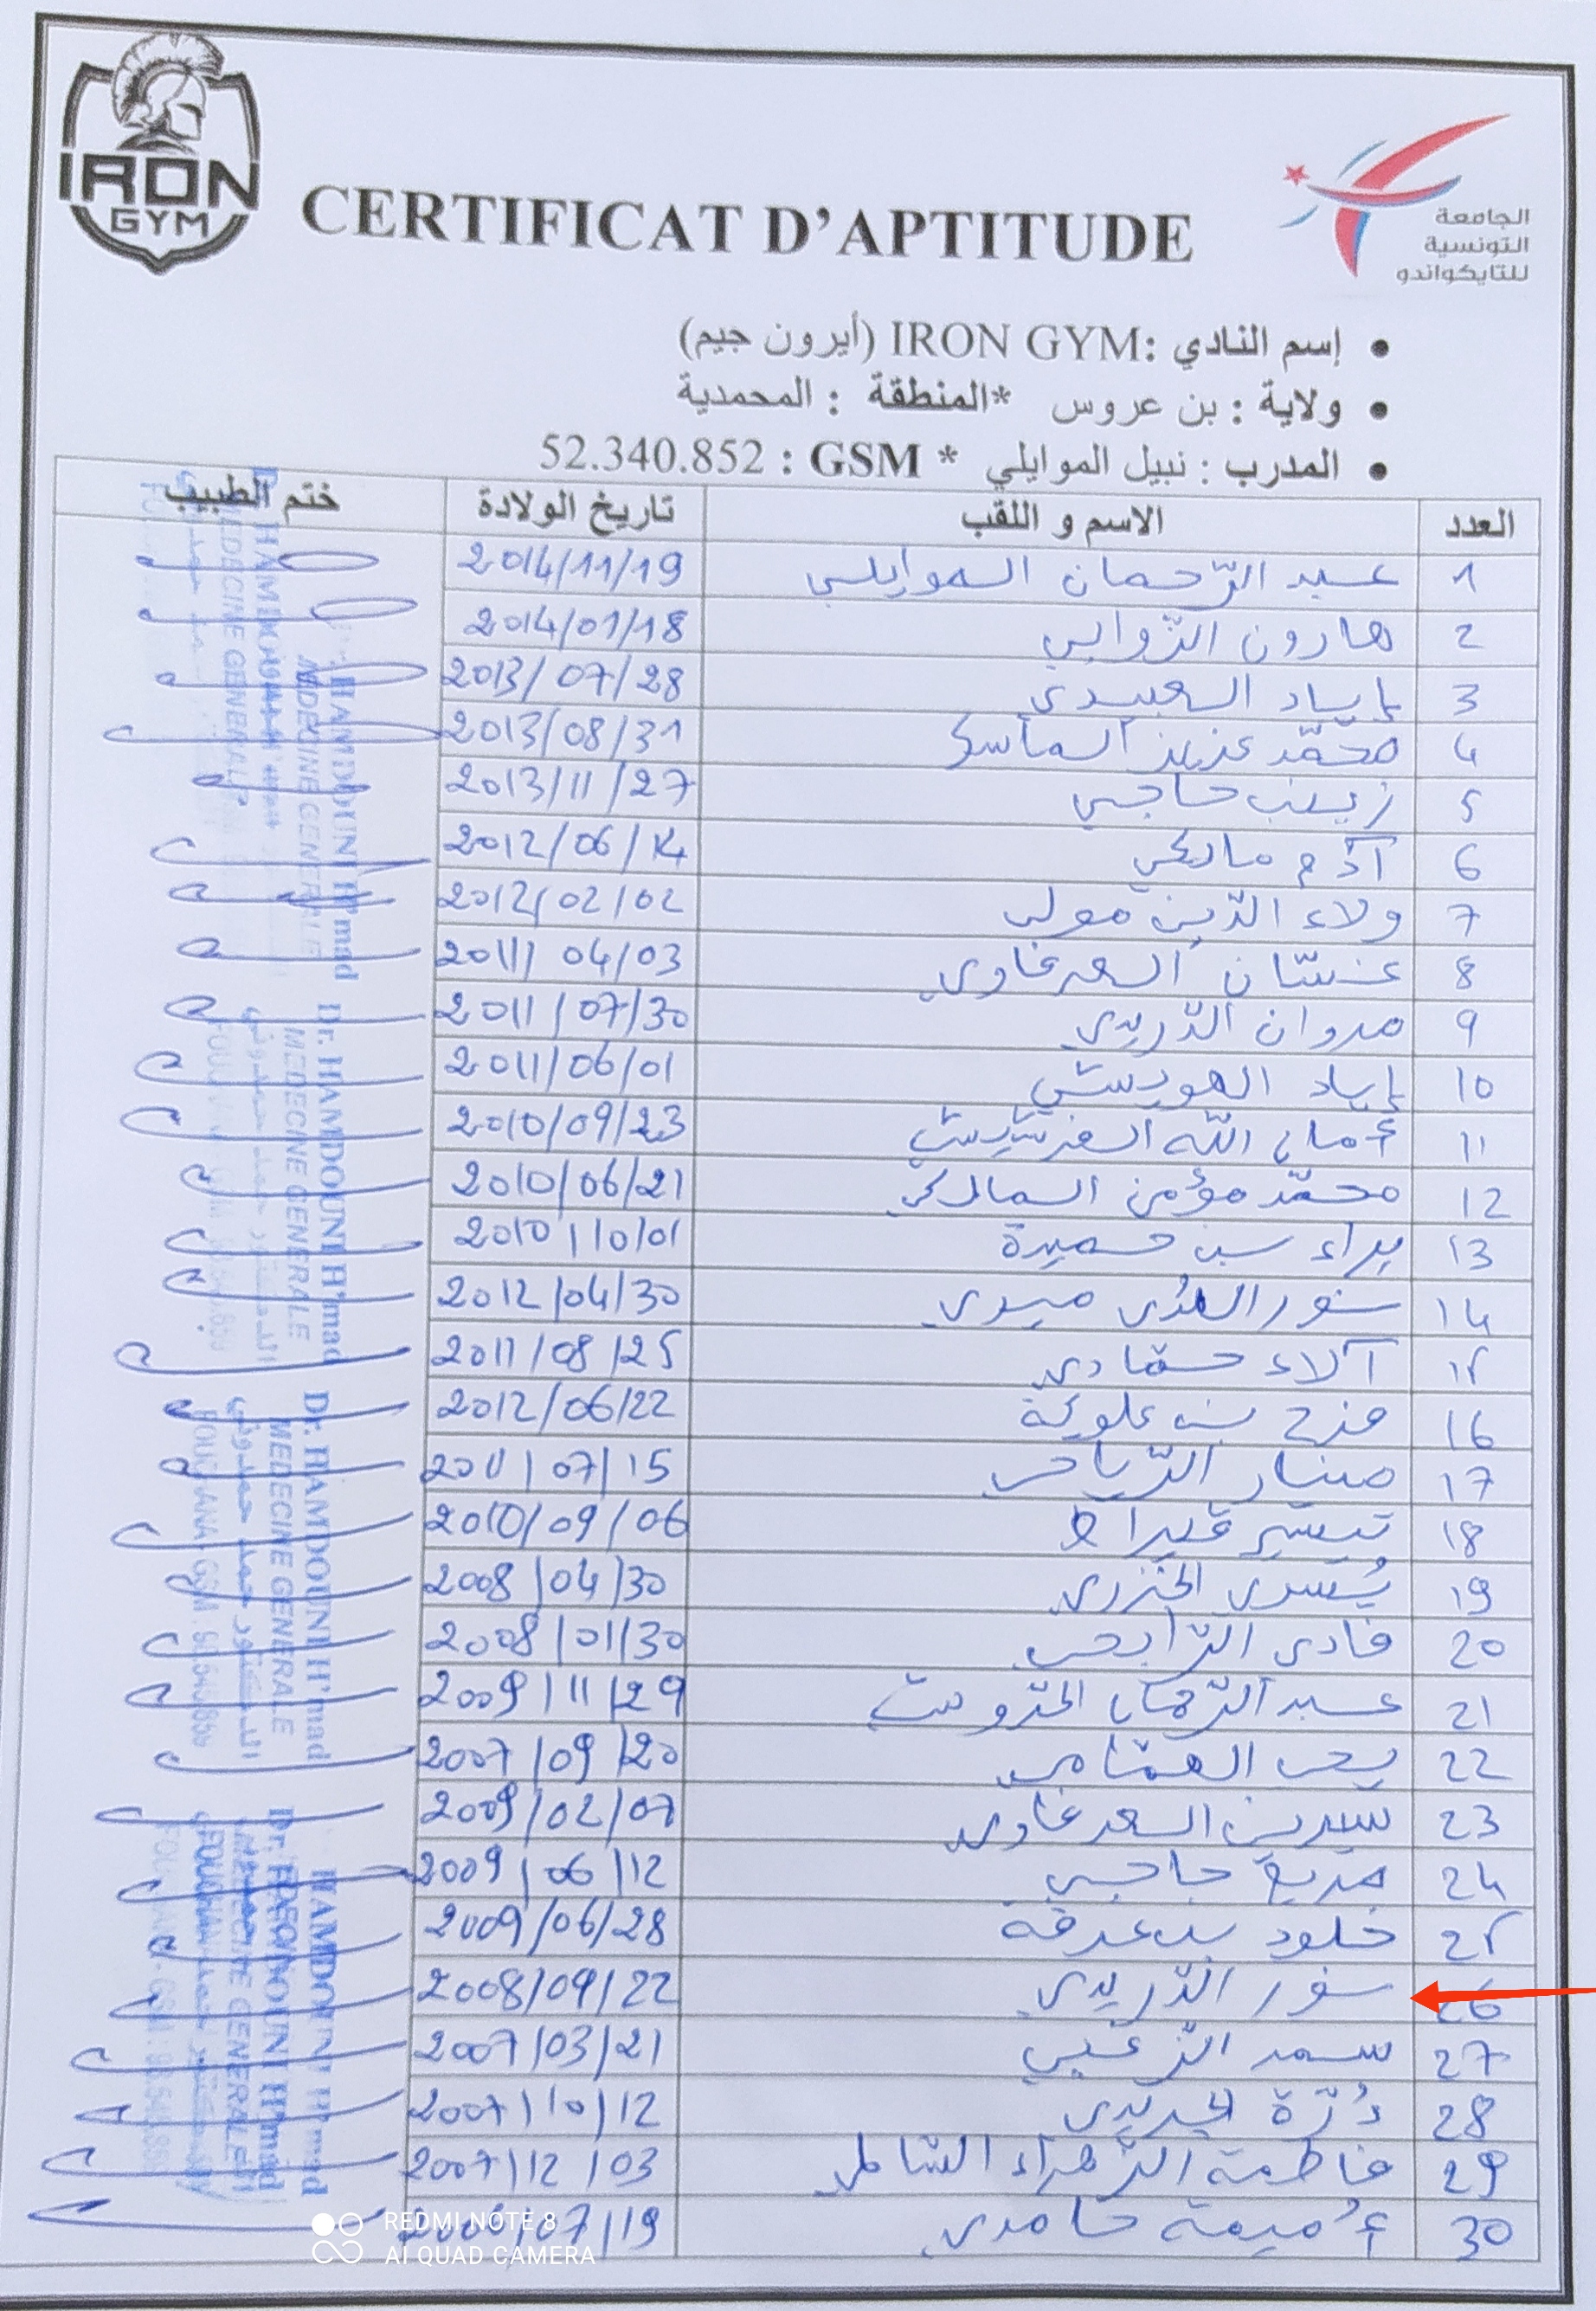 IRON
GYM
CERTIFICAT D'APTITUDE
الجامعة
التونسية
للتايكواندو
• إسم النادي :IRON GYM (أيرون جيم)
• ولاية : بن عروس *المنطقة : المحمدية
• المدرب : نبيل الموايلي * GSM : 52.340.852
العدد الاسم و اللقب تاريخ الولادة ختم الطبيب
1 عبد الرّحمان الموايلي 2014/11/19
2 هارون الزّوابي 2014/01/18
3 إياد العبيدي 2013/07/28
4 محمّد عزيز الماسي 2013/08/31
5 زينب حاجي 2013/11/27
6 آدم مالكي 2012/06/14
7 ولاء الدّين مولى 2012/02/02
8 غسّان السعرغاوي 2011/04/03
9 مروان الدّريدي 2011/07/30
10 إياد الهويشي 2011/06/01
11 أمان الله الفرشيشي 2010/09/23
12 محمّد مؤمن المالكي 2010/06/21
13 براء بن حميدة 2010/10/01
14 نور الهدى ميري 2012/04/30
15 آلاء حمّادي 2011/08/25
16 فرح بن علوية 2012/06/22
17 منار الرّياحي 2011/07/15
18 تيسير قيراط 2010/09/06
19 يُسرى الخزري 2008/04/30
20 فادي الرّابحي 2008/01/30
21 عبد الرّحمان 2009/11/29
22 يحي الهمّامي 2007/09/20
23 سيرين السعرغاوي 2009/02/07
24 مريم حاجي 2009/06/12
25 خلود بن عرفة 2009/06/28
26 نور الدّريدي 2008/09/22
27 سمر الزّغبي 2007/03/21
28 دُرّة الجريدي 2007/10/12
29 فاطمة الزّهراء الشّاملي 2007/12/03
30 أُميمة حامدي 07/19
Dr. HAMDOUNI H'mad
MEDECINE GENERALE
Dr. HAMDOUNI H'mad
MEDECINE GENERALE
الدكتور حمد حمدوني
Dr. HAMDOUNI H'mad
MEDECINE GENERALE
الدكتور حمد حمدوني
FOUCHANA
Dr. HAMDOUNI H'mad
REDMI NOTE 8
AI QUAD CAMERA